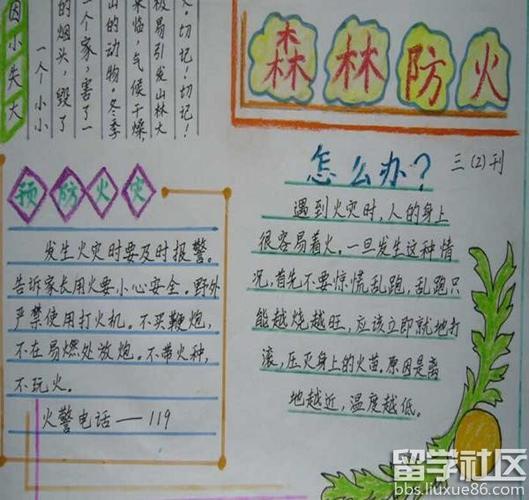 森林防火
因小失大
一个小小
的烟头,毁了
一个家,害了一
山的动物.冬季
来临,气候干燥,
极易引发山林大
火.切记!切记!
预防火灾
发生火灾时要及时报警。
告诉家长用火要小心安全。野外
严禁使用打火机。不买鞭炮,
不在易燃处放炮。不带火种,
不玩火。
火警电话——119
怎么办?
三(2)刊
遇到火灾时,人的身上
很容易着火。一旦发生这种情
况,首先不要惊慌乱跑,乱跑只
能越烧越旺,应该立即就地打
滚,压灭身上的火苗.原因是离
地越近,温度越低。
留学社区
bbs.liuxue86.com